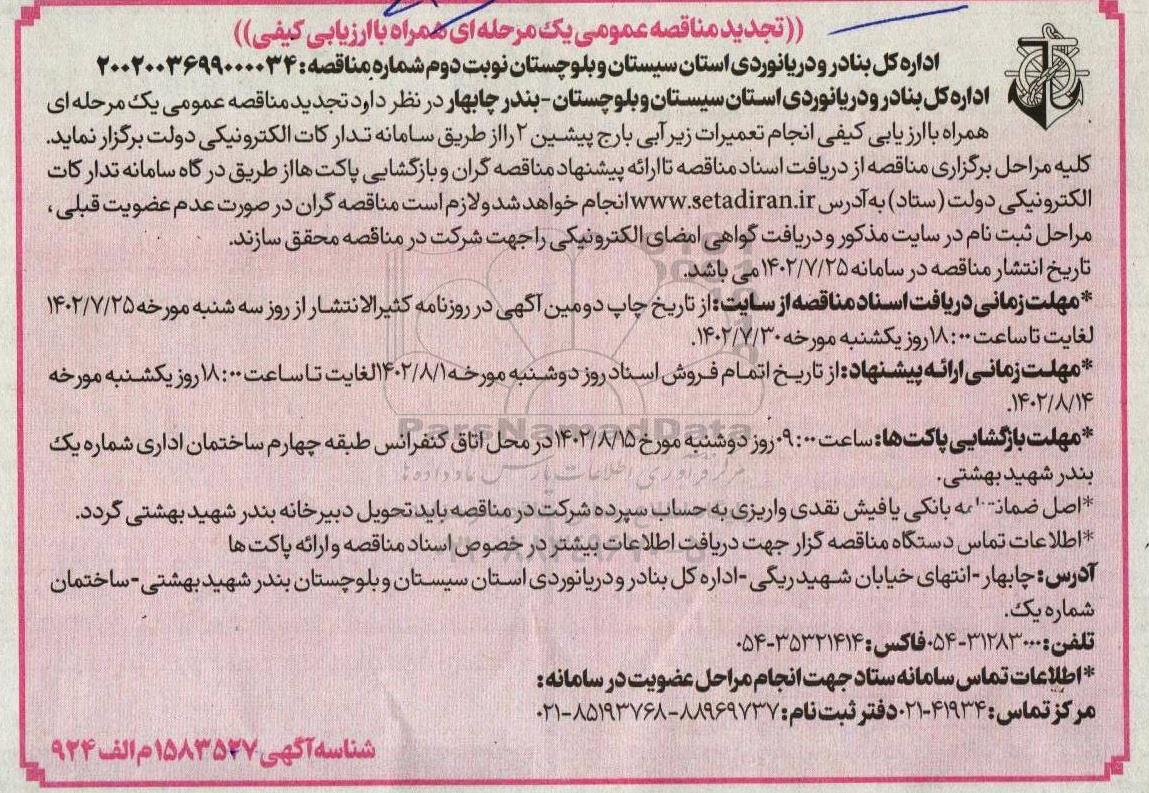 ((تجدید مناقصه عمومی یک مرحله ای همراه با ارزیابی کیفی))
اداره کل بنادر و دریانوردی استان سیستان و بلوچستان نوبت دوم شماره مناقصه: ۲۰۰۲۰۰۳۶۹۹۰۰۰۰۳۴
اداره کل بنادر و دریانوردی استان سیستان و بلوچستان - بندر چابهار در نظر دارد تجدید مناقصه عمومی یک مرحله ای
همراه با ارزیابی کیفی انجام تعمیرات زیر آبی بارج پیشین ۲ را از طریق سامانه تدارکات الکترونیکی دولت برگزار نماید.
کلیه مراحل برگزاری مناقصه از دریافت اسناد مناقصه تا ارائه پیشنهاد مناقصه گران و بازگشایی پاکت ها از طریق درگاه سامانه تدارکات
الکترونیکی دولت (ستاد) به آدرس www.setadiran.ir انجام خواهد شد و لازم است مناقصه گران در صورت عدم عضویت قبلی،
مراحل ثبت نام در سایت مذکور و دریافت گواهی امضای الکترونیکی را جهت شرکت در مناقصه محقق سازند.
تاریخ انتشار مناقصه در سامانه ۱۴۰۲/۷/۲۵ می باشد.
*مهلت زمانی دریافت اسناد مناقصه از سایت: از تاریخ چاپ دومین آگهی در روزنامه کثیرالانتشار از روز سه شنبه مورخه ۱۴۰۲/۷/۲۵
لغایت تا ساعت ۱۸:۰۰ روز یکشنبه مورخه ۱۴۰۲/۷/۳۰.
*مهلت زمانی ارائه پیشنهاد: از تاریخ اتمام فروش اسناد روز دوشنبه مورخه ۱۴۰۲/۸/۱ لغایت تا ساعت ۱۸:۰۰ روز یکشنبه مورخه
۱۴۰۲/۸/۱۴.
*مهلت بازگشایی پاکت ها: ساعت ۰۹:۰۰ روز دوشنبه مورخ ۱۴۰۲/۸/۱۵ در محل اتاق کنفرانس طبقه چهارم ساختمان اداری شماره یک
بندر شهید بهشتی.
ParsNamadData
*اصل بانکی یا فیش نقدی واریزی به حساب سپرده شرکت در مناقصه باید تحویل دبیرخانه بندر شهید بهشتی گردد.
*اطلاعات تماس دستگاه مناقصه گزار جهت دریافت اطلاعات بیشتر در خصوص اسناد مناقصه و ارائه پاکت ها
آدرس: چابهار - انتهای خیابان شهید ریگی - اداره کل بنادر و دریانوردی استان سیستان و بلوچستان بندر شهید بهشتی - ساختمان
شماره یک.
تلفن: ۳۱۲۸۳۰۰۰-۰۵۴ فاکس: ۳۵۳۲۱۴۱۴-۰۵۴
*اطلاعات تماس سامانه ستاد جهت انجام مراحل عضویت در سامانه:
مرکز تماس: ۴۱۹۳۴-۰۲۱ دفتر ثبت نام: ۸۸۹۶۹۷۳۷-۸۵۱۹۳۷۶۸-۰۲۱
شناسه آگهی ۱۵۸۳۵۲۷ م الف ۹۲۴